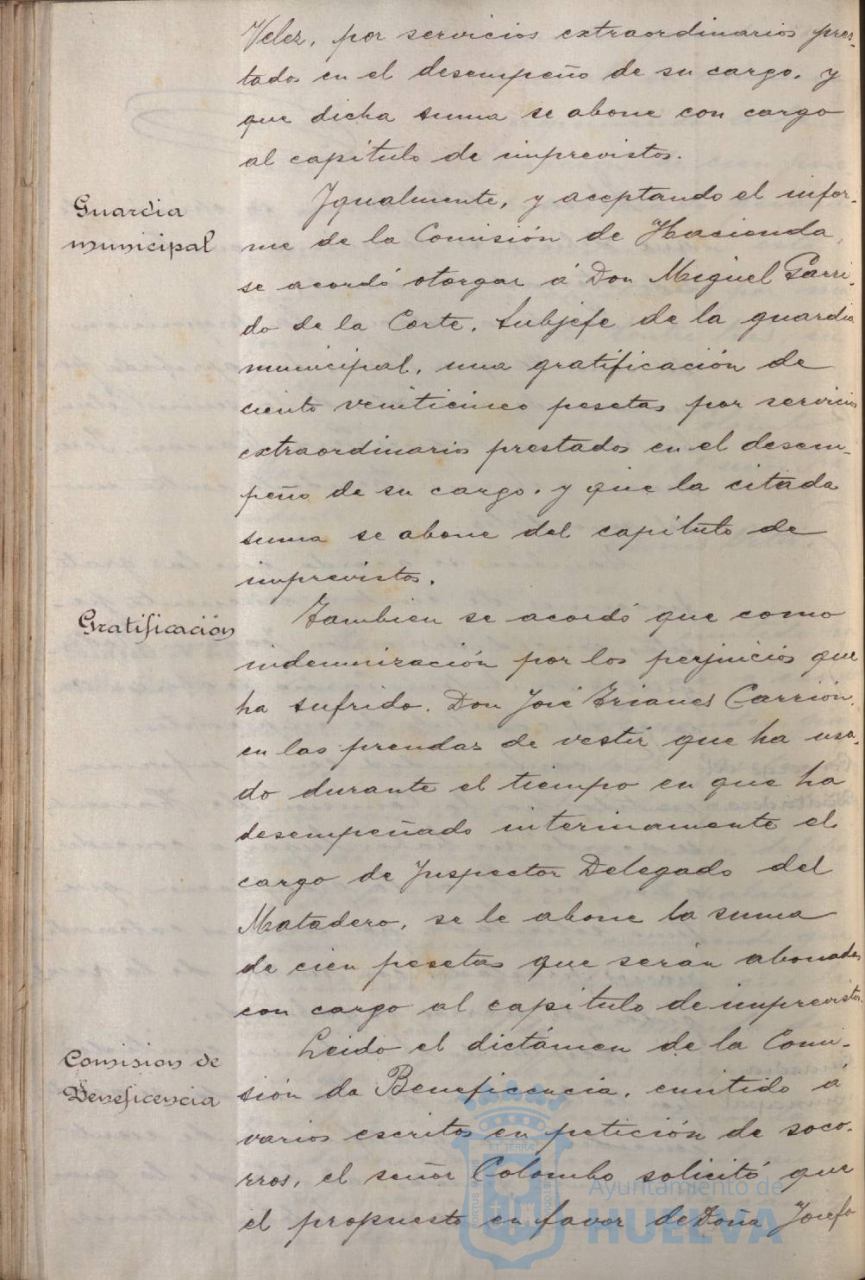 Velez, por servicios extraordinarios pres-
tados en el desempeño de su cargo, y
que dicha suma se abone con cargo
al capitulo de imprevistos.
Guardia
municipal
Igualmente, y aceptando el infor-
me de la Comisión de Hacienda,
se acordó otorgar á Don Miguel Garri-
do de la Corte, Subjefe de la guardia
municipal, una gratificación de
ciento veinticinco pesetas por servicios
extraordinarios prestados en el desem-
peño de su cargo, y que la citada
suma se abone del capitulo de
imprevistos.
Gratificación
Tambien se acordó que como
indemnización por los perjuicios que
ha sufrido, Don José Trianes Carrión,
en las prendas de vestir que ha usa-
do durante el tiempo en que ha
desempeñado interinamente el
cargo de Inspector Delegado del
Matadero, se le abone la suma
de cien pesetas que serán abonadas
con cargo al capitulo de imprevistos.
Comision de
Beneficencia
Leido el dictámen de la Comi-
sión de Beneficencia, emitido á
varios escritos en petición de soco-
rros, el señor Colombo solicitó que
el propuesto en favor de Doña Josefa
Ayuntamiento de
HUELVA